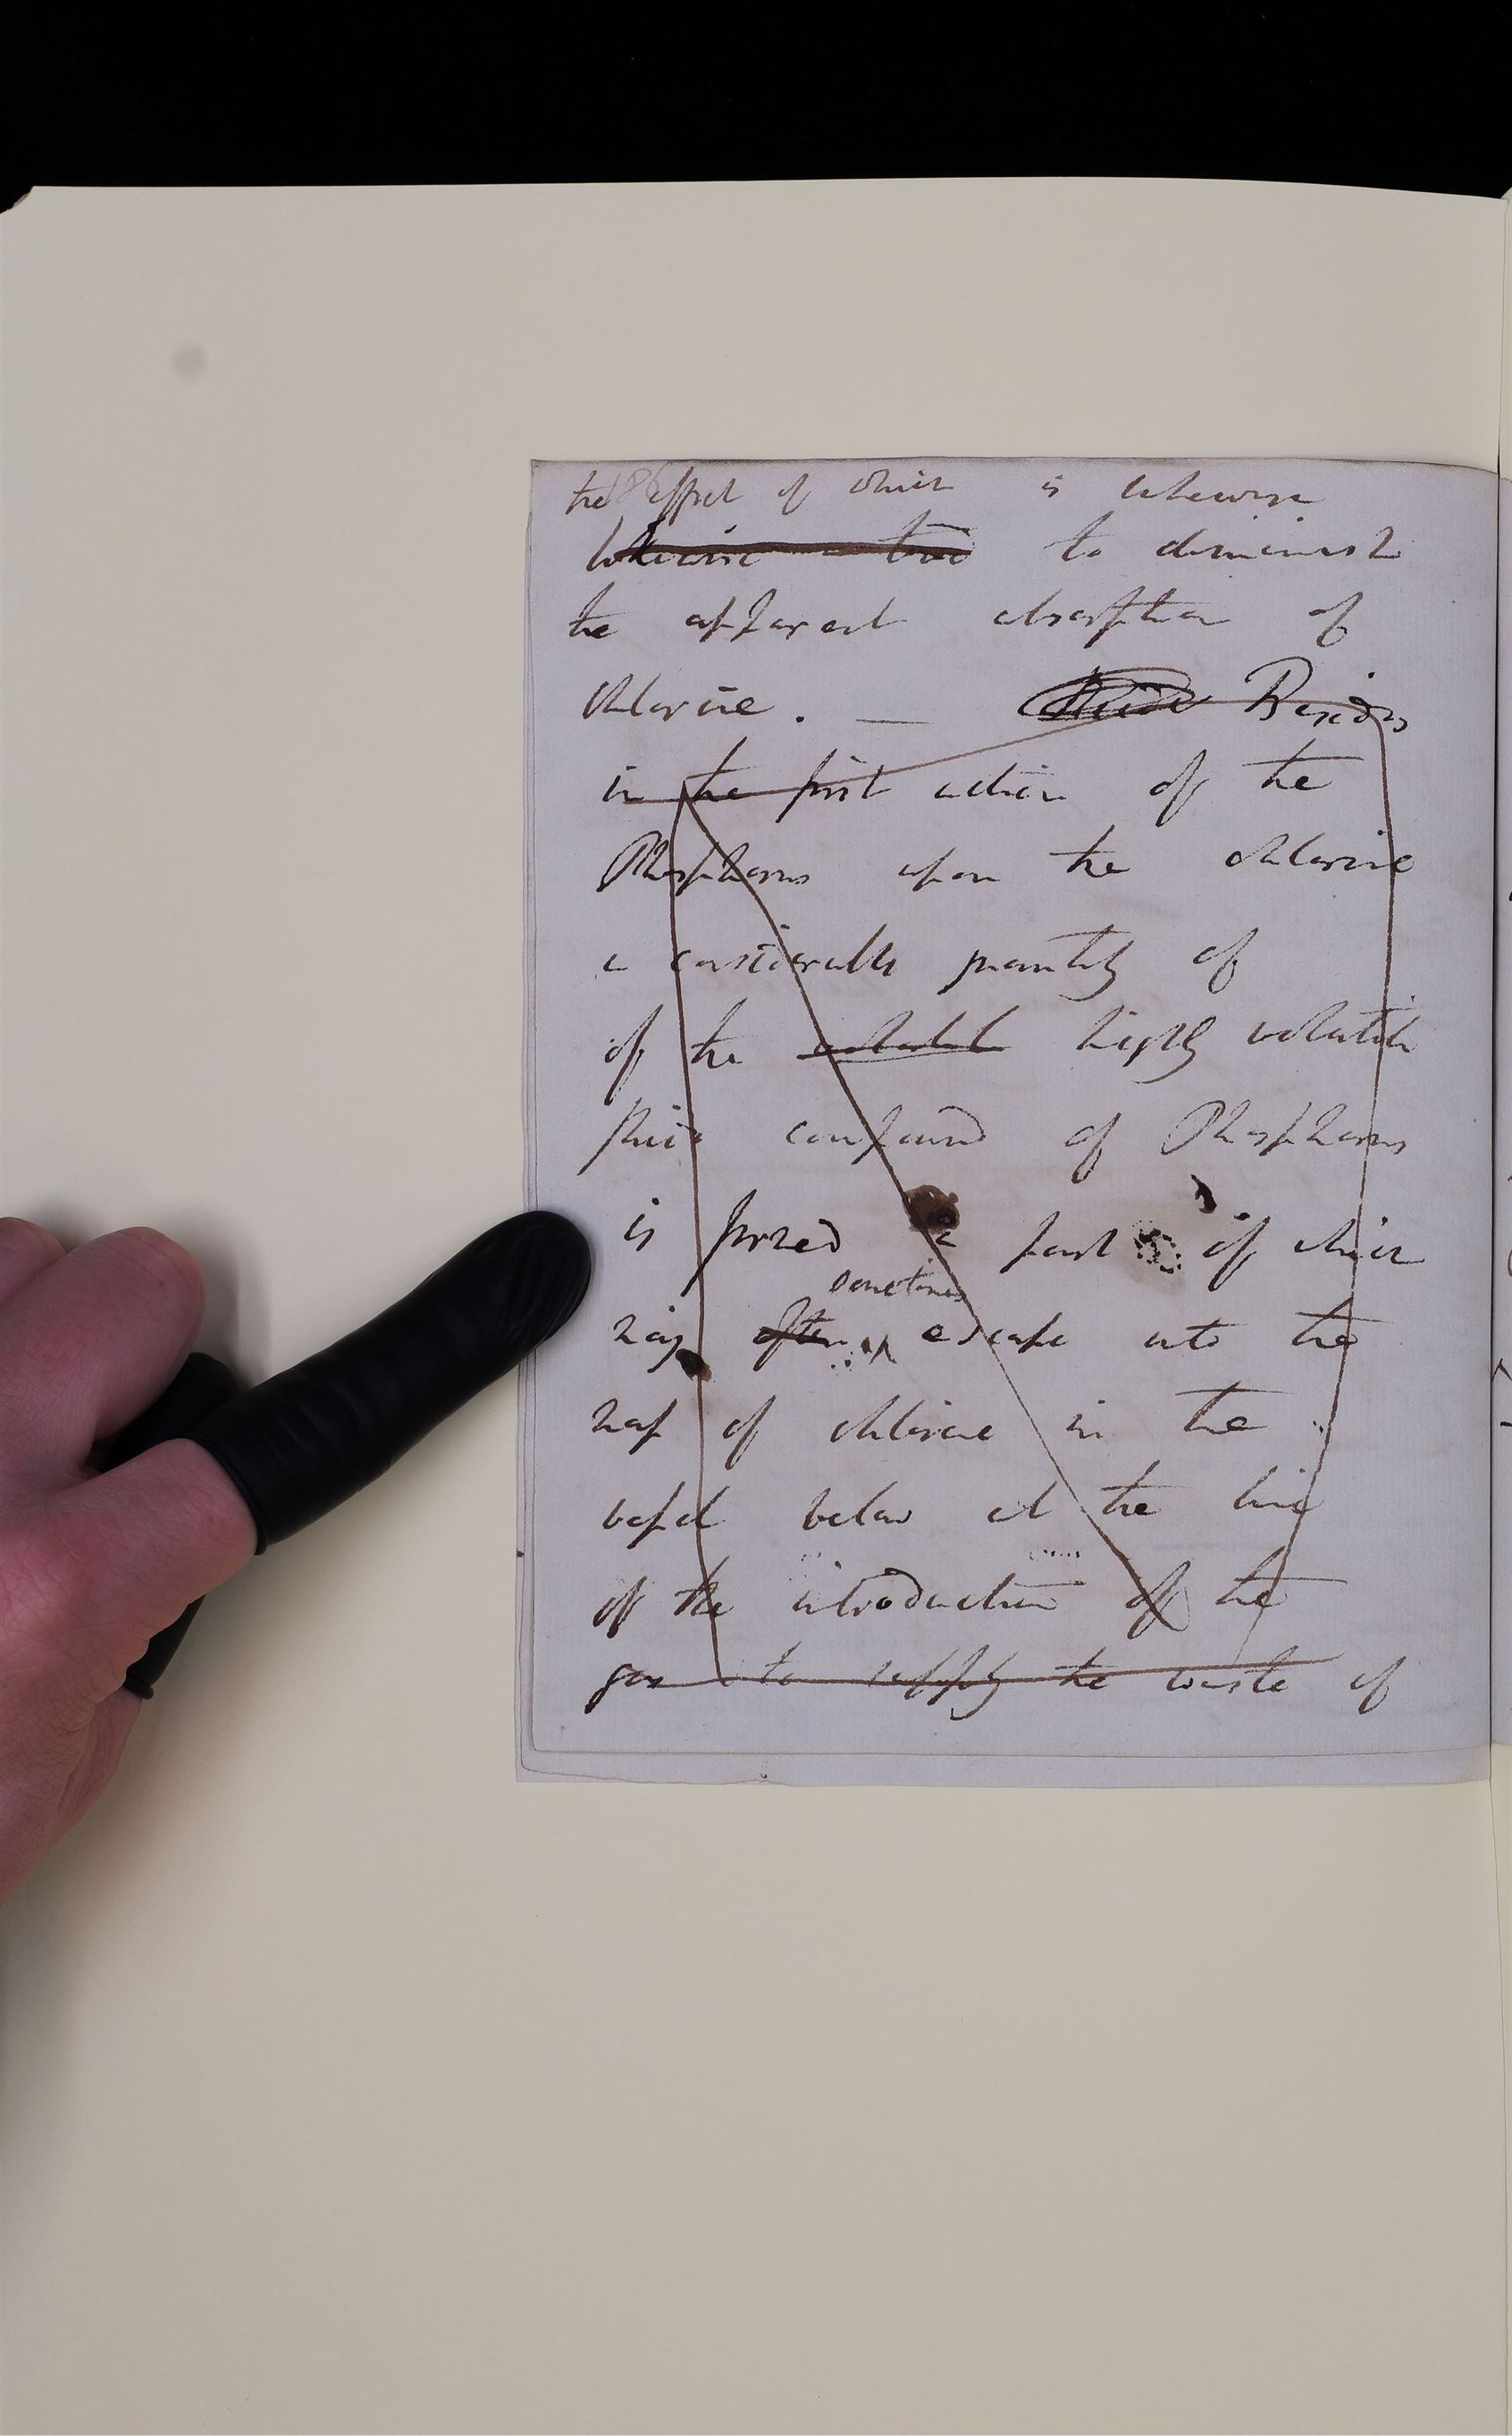 the effect of which is likewise
likewise to diminish
the apparent absorption of
chlorine. — Besides
in the first action of the
Phosphorus upon the chlorine
a considerable quantity of
of the volatile highly volatile
fluid compound of Phosphorus
is formed a part of which
sometimes
may often escape into the
neck of chlorine in the
vessel below at the time
of the introduction of the
gas to supply the waste of